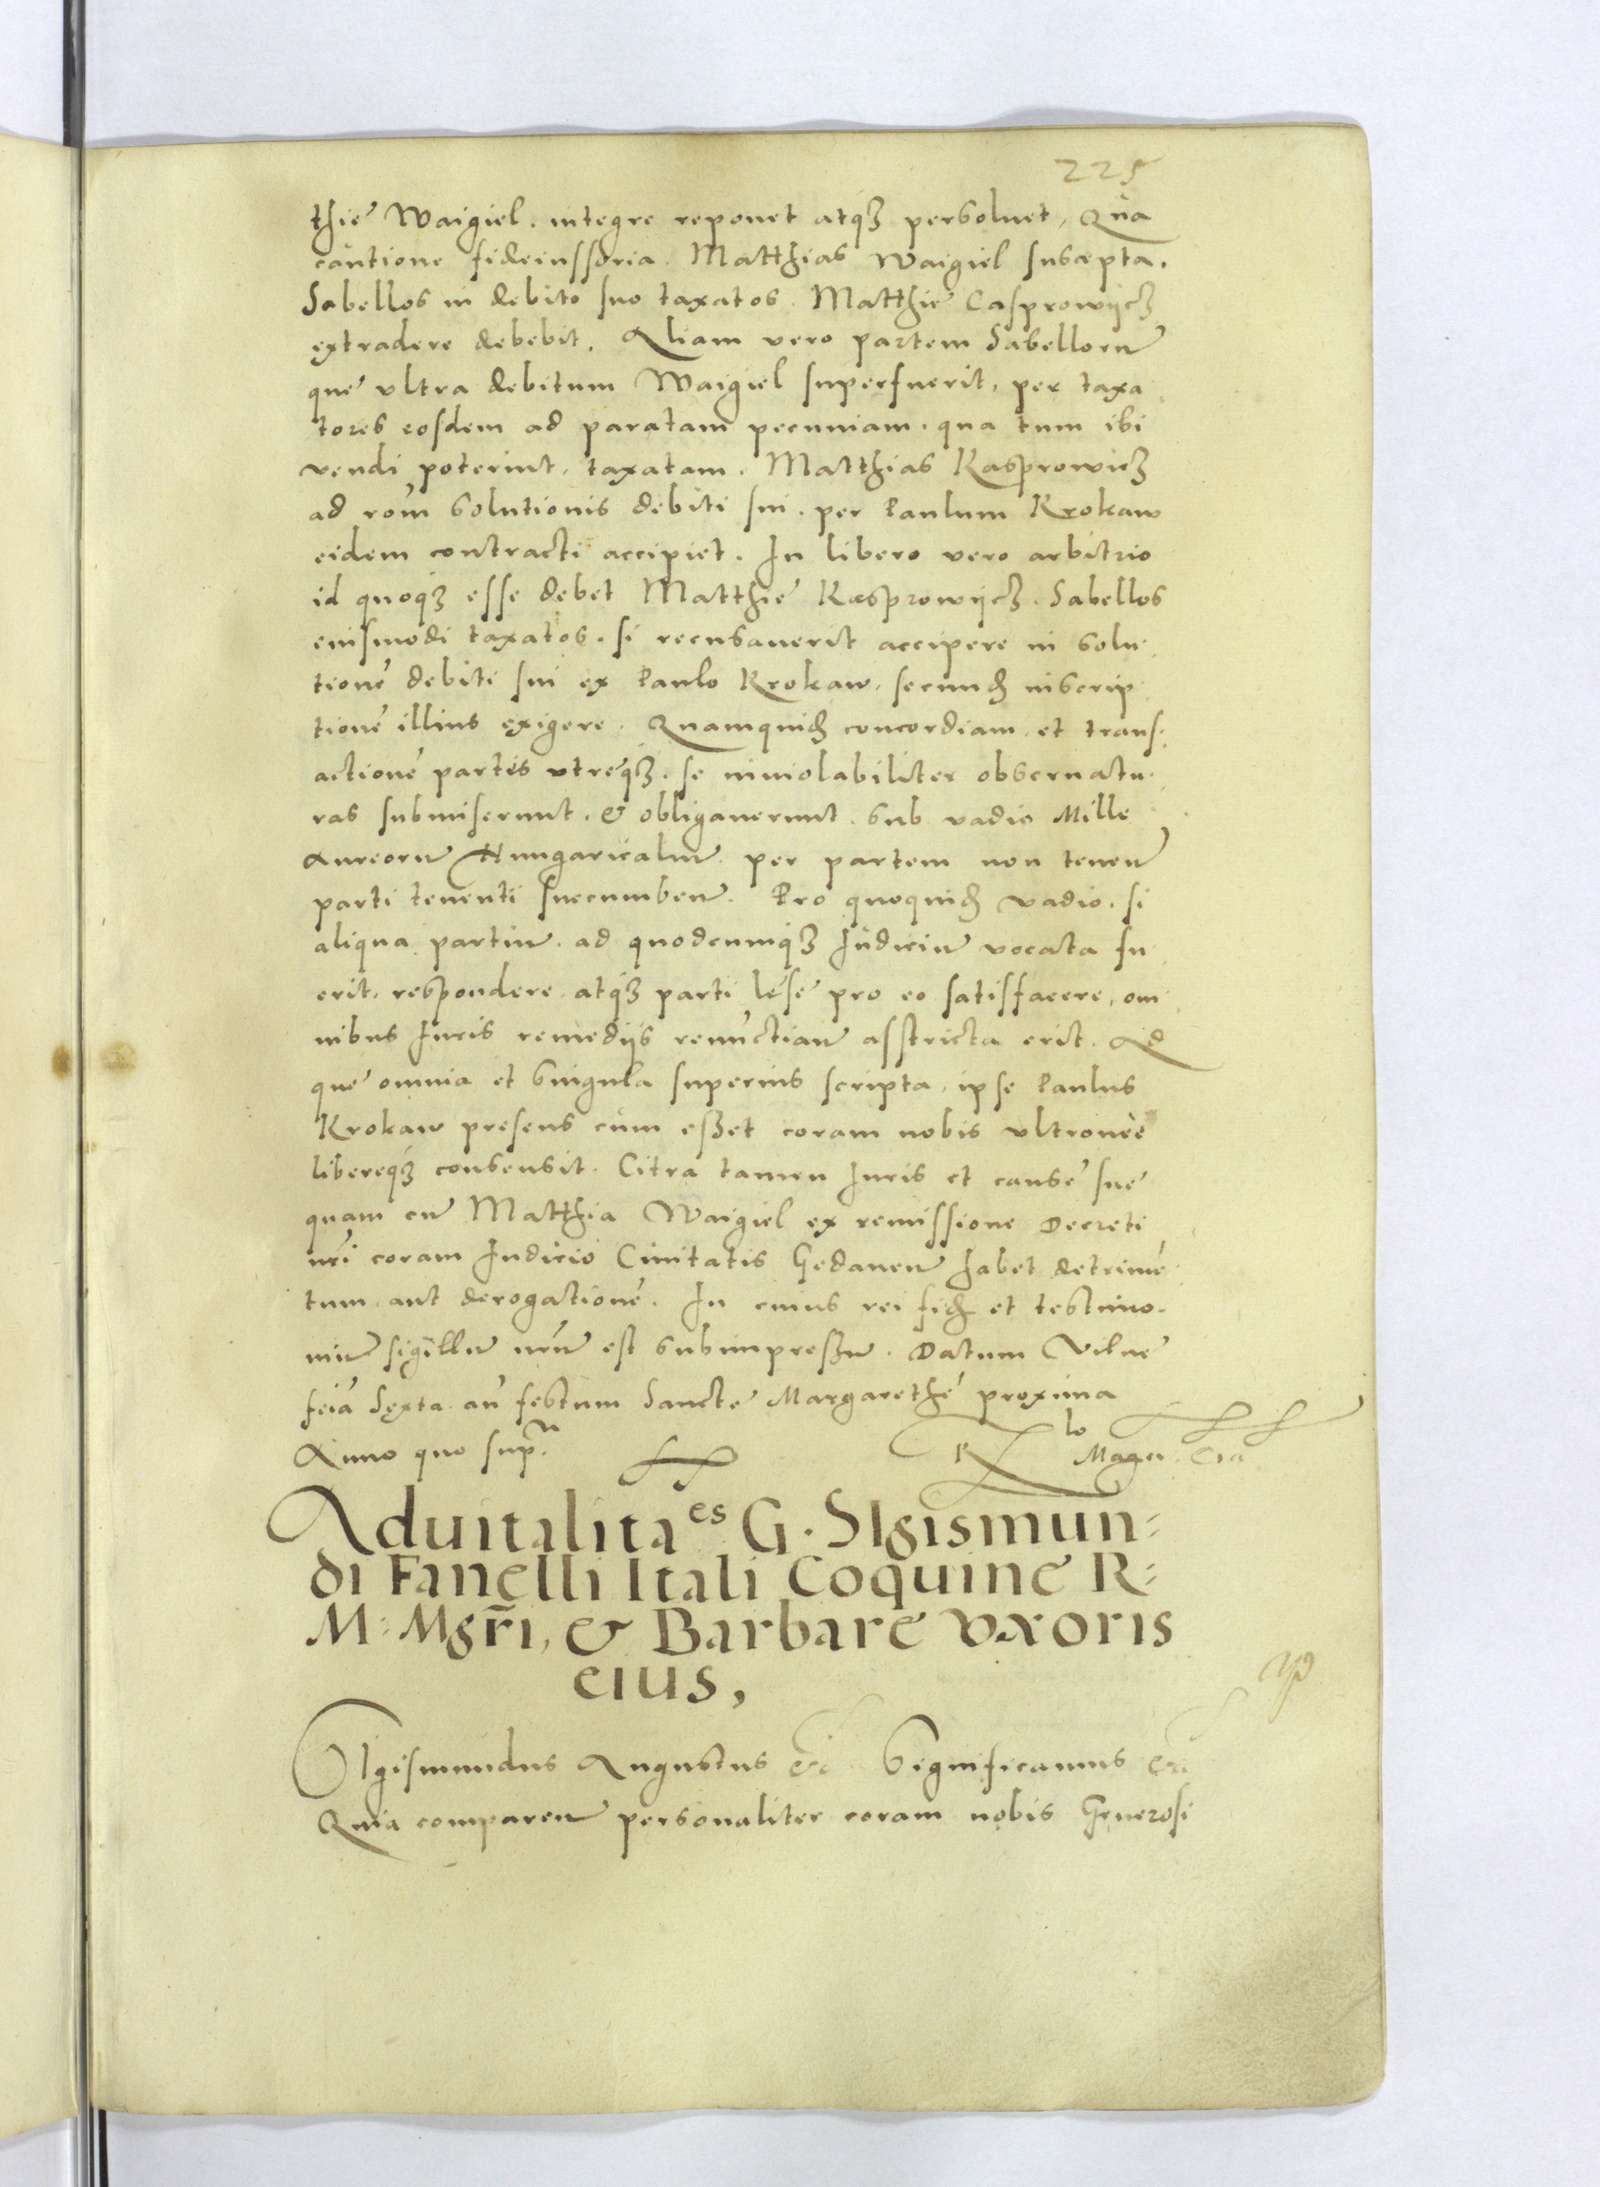 225
thie Waigiel. integre reponet atq₃ persoluet, Qua
cautione fideiussoria. Matthias Waigiel suscepta.
Sabellos in debito suo taxatos. Matthie Casprowijcz
extradere debebit. Aliam vero partem Sabellorum
que vltra debitum Waigiel superfuerit, per taxa
tores eosdem ad paratam pecuniam. qua tum ibi
vendi poterint, taxatam. Matthias Kasprowicz
ad rom̄ solutionis debiti sui. per Paulum Krokaw
eidem contracti accipiet. In libero vero arbitrio
id quoq₃ esse debet Matthie Kasprowijcz. Sabellos
eiusmodi taxatos. si recusauerit accipere in solu
tionē debiti sui ex Paulo Krokaw, secund̄ inscrip
tionē illius exigere. Quamquid̄ concordiam et trans:
actionē partes vtreq₃. se inuiolabiliter obseruatu.
ras submiserunt. & obligauerunt. sub vadio Mille
Aureorū Hungaricaliū per partem non tenen̄
parti tenenti succumben̄. Pro quoquid̄ vadio. si
aliqua partiū. ad quodcumq₃ Iudiciū vocata fu
erit, respondere atq₃ parti lese pro eo satisfacere, om
nibus Iuris remedijs renunctian̄ asstricta erit. Ad
que omnia et singula superius scripta, ipse Paulus
Krokaw presens cum eßet coram nobis vltronee
libereq₃ consensit. Citra tamen Iuris et cause sue
quam cū Matthia Waigiel ex remissione Decreti
nr̄i coram Iudicio Ciuitatis Gedanen̄ habet detrimē
tum aut derogationē. In cuius rei fid̄ et testimo.
niū sigillū nr̄ū est subimpreßū. Datum Vilne
feīa Sexta an̄ festum Sancte Margarethe proxima
Anno quo supra
R
Aduitalitaes G. SIgismun=
di Fanelli Itali Coquine R=
M: Mgr̄i, & Barbare vxoris
eius,
SIgismundus Augustus &c Significamus &c
Quia comparen̄ personaliter coram nobis Generosi